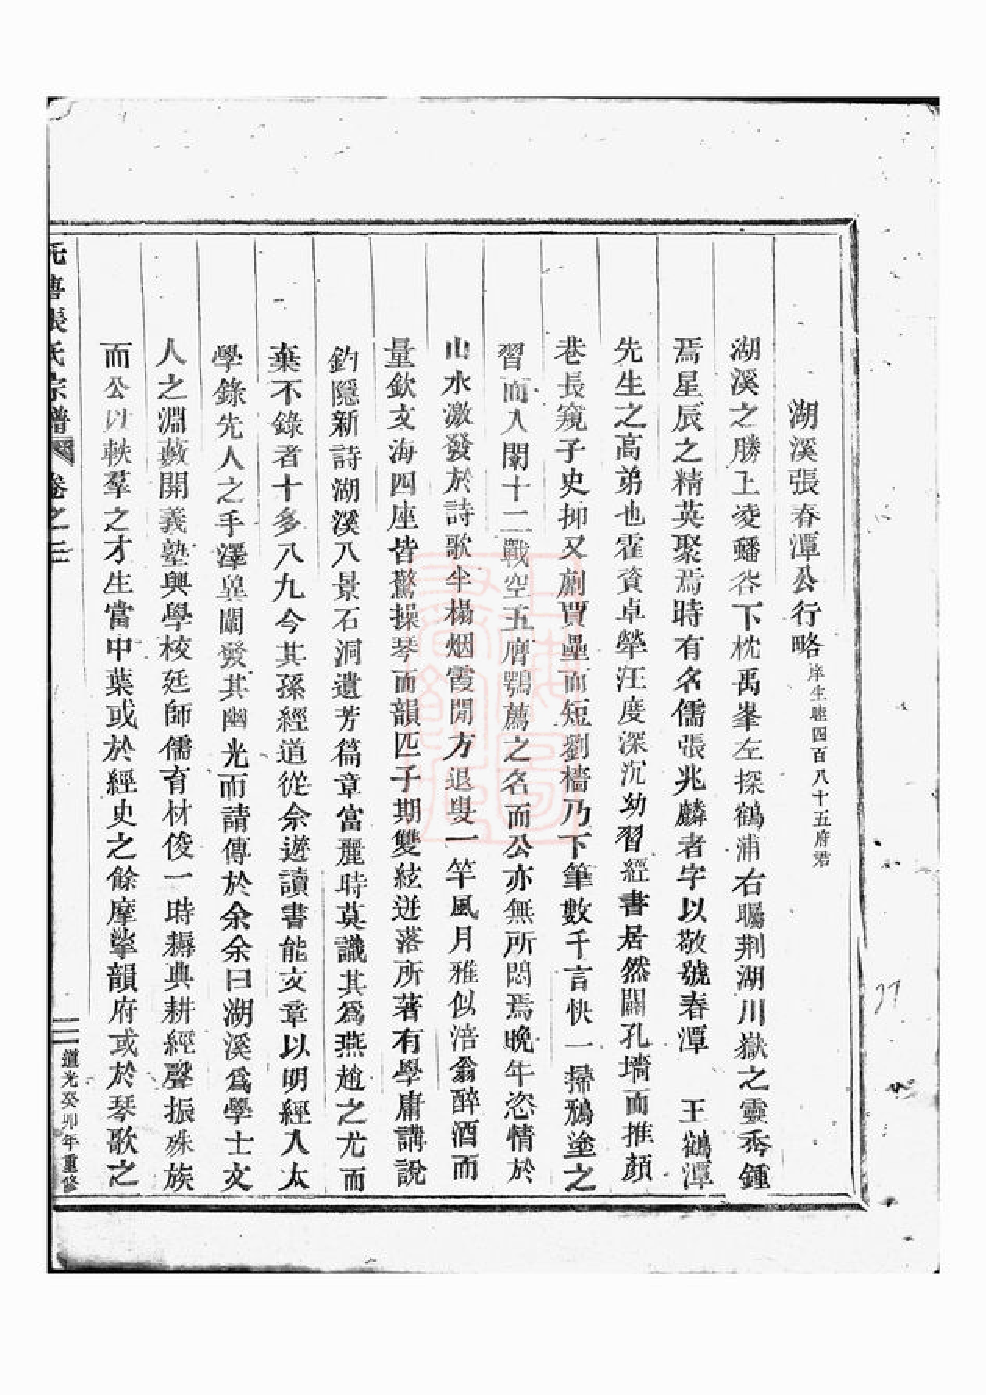 湖溪張春潭公行略庠生聰四百八十五府君
湖溪之勝上凌蟠峇下枕禹峯左探鶴浦右矚荆湖川嶽之靈秀鍾
焉星辰之精英聚焉時有名儒張兆麟者字以敬號春潭 王鶴潭
先生之高弟也霍資卓犖汪度深沉幼習經書居然闢孔墻而推顏
巷長窺子史抑又劘賈壘而短劉墻乃下筆數千言快一掃鴉塗之
習而入闈十二戰空五膺鶚薦之名而公亦無所悶焉晚年恣情於
山水激發於詩歌半榻烟霞閒方退叟一竿風月雅似涪翁醉酒而
量欽文海四座皆驚操琴而韻匹子期雙絃迸落所著有學庸講說
釣隱新詩湖溪八景石洞遺芳篇章富麗時莫識其爲燕趙之尤而
棄不錄者十多八九今其孫經道從余遊讀書能文章以明經入太
學錄先人之手澤㫷闡發其幽光而請傳於余余曰湖溪爲學士文
人之淵藪開義塾興學校廷師儒育材俊一時耨典耕經聲振殊族
而公以軼羣之才生當中葉或於經史之餘摩挲韻府或於琴歌之
張氏宗譜 卷之二
道光癸卯年重修